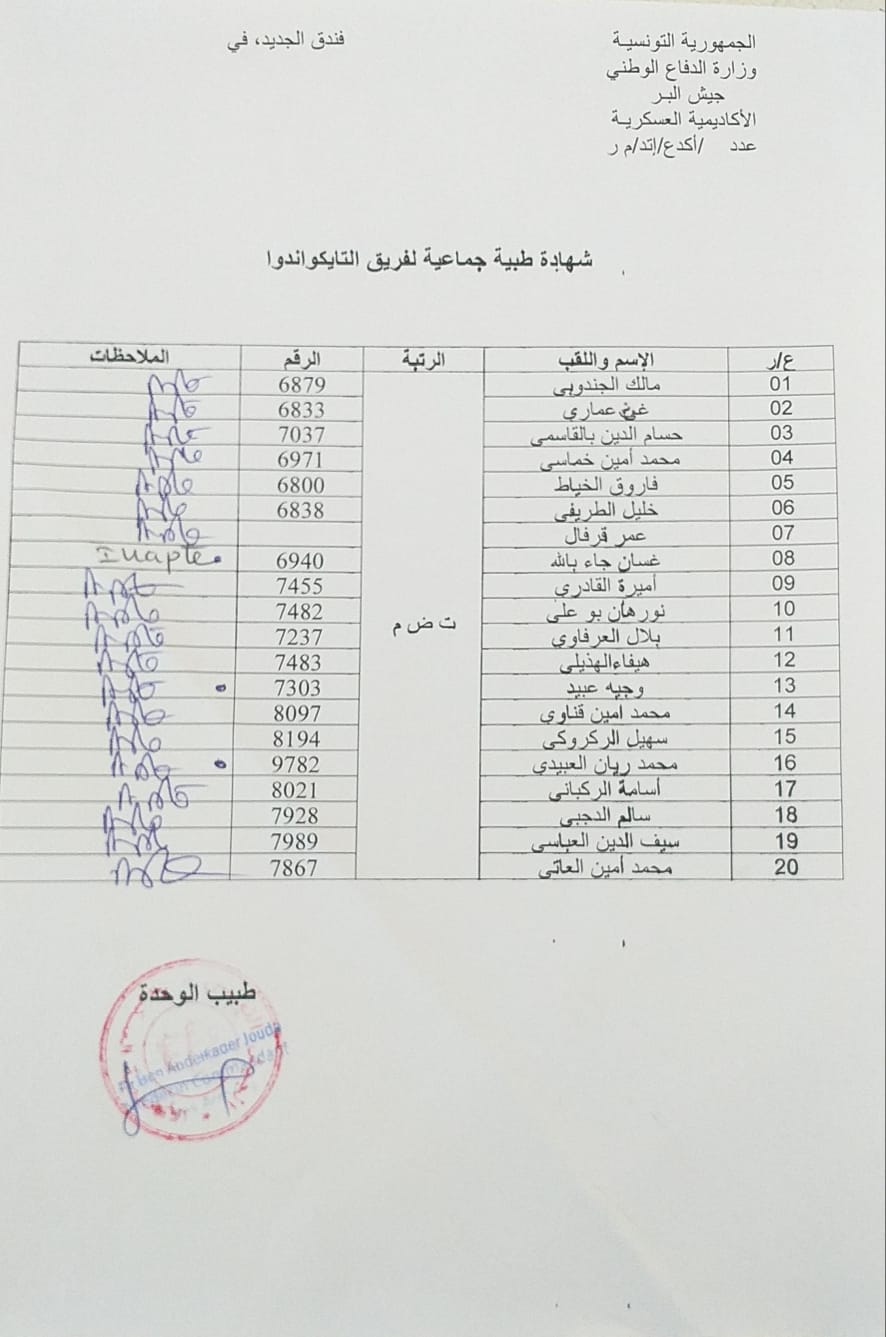 الجمهورية التونسية
وزارة الدفاع الوطني
جيش البر
الأكاديمية العسكرية
عدد /أكدع/إتد/م ر
فندق الجديد، في
شهادة طبية جماعية لفريق التايكواندوا
ع/ر الإسم واللقب الرتبة الرقم الملاحظات
01 مالك الجندوبي 6879 Apte
02 عماري 6833 Apte
03 حسام الدين بالقاسمي 7037 Apte
04 محمد أمين خماسي 6971 Apte
05 فاروق الخياط 6800 Apte
06 خليل الطريفي 6838 Apte
07 عمر قرفال Apte
08 غسان جاء بالله 6940 Inapte
09 أميرة القادري 7455 Apte
10 نورهان بو علي 7482 Apte
11 بلال العرفاوي ت ض م 7237 Apte
12 هيفاءالهذيلي 7483 Apte
13 وجيه عبيد 7303 Apte
14 محمد امين قناوي 8097 Apte
15 سهيل الركروكي 8194 Apte
16 محمد ريان العبيدي 9782 Apte
17 أسامة الركباني 8021 Apte
18 سالم الدجبي 7928 Apte
19 سيف الدين العباسي 7989 Apte
20 محمد أمين العاتي 7867 Apte
طبيب الوحدة
Dr Ben Abdelkader Jouda
Médecin Commandant